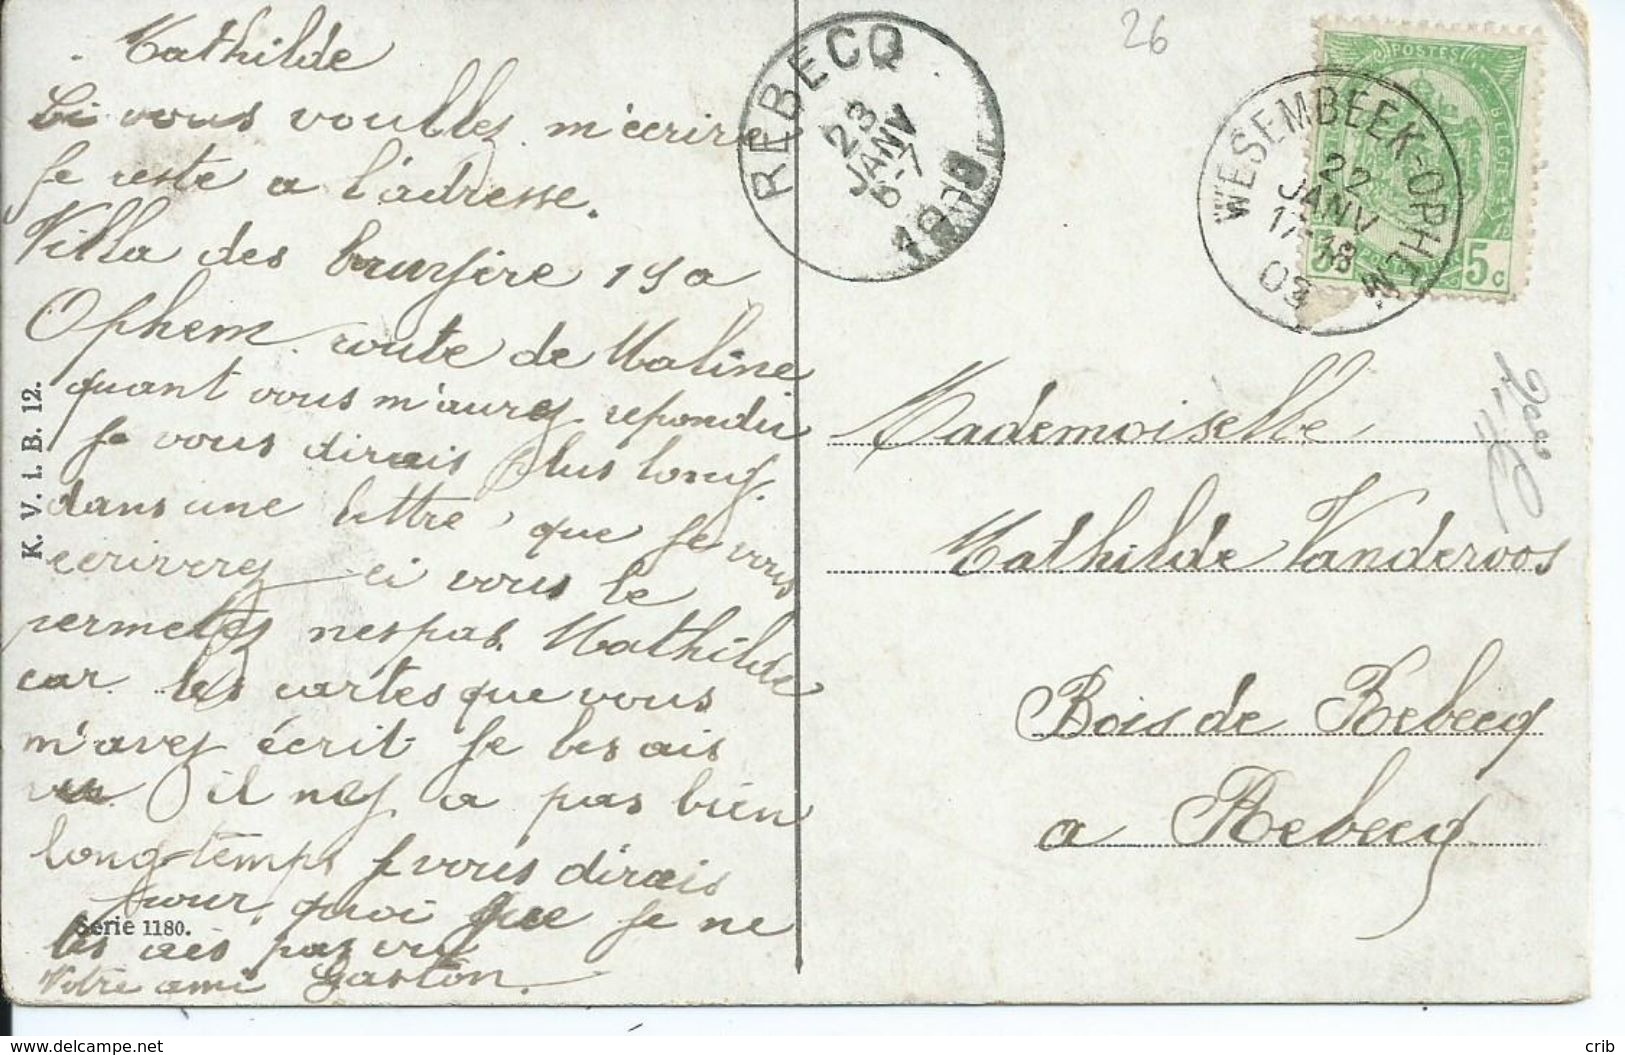 Mathilde
Si vous voullez m'ecrire
je reste a l'adresse.
Villa des bruyère 190
Ophem route de Maline
quant vous m'aurez repondu
je vous dirais plus long.
dans une lettre que je vous
ecriverez si vous le
permetez nespas Mathilde
car les cartes que vous
m'avez écrit je les ais
vu il nez a pas bien
long-temps je vous dirais
pour quoi que je ne
les aes pas vu
Votre ami Gaston.
K. V. i. B. 12.
Serie 1180.
REBECQ
23
JANV
6-7
26
POSTES
BELGIË
5c
WESEMBEEK-OPHEM
22
JANV
17-18
09
Mademoiselle
Mathilde Vandervoos
Bois de Rebecq
a Rebecq
delcampe.net
crib